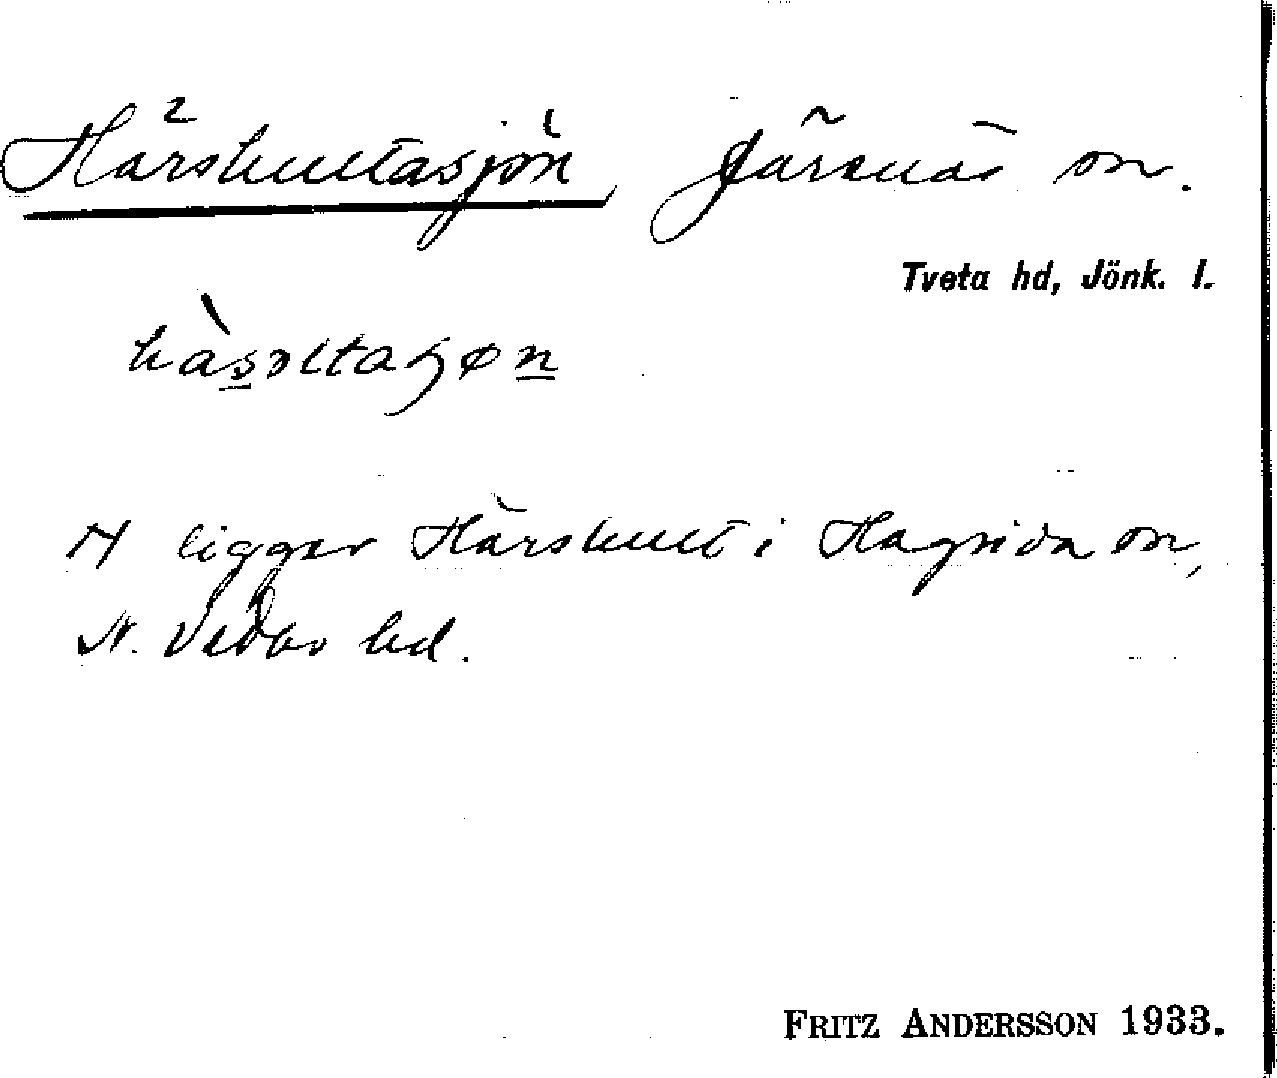 Härshultasjön Järsnäs sn.
Tveta hd, Jönk. l.
hàsɔltaɧøn
N ligger Härshult i Hagsida sn,
N. Vedbo hd.
FRITZ ANDERSSON 1933.